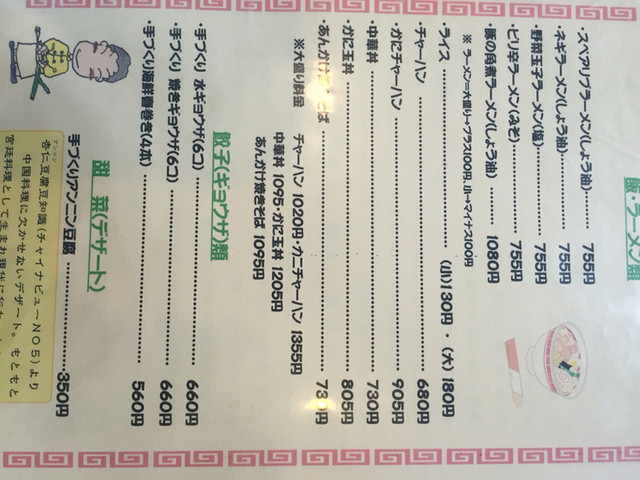 飯・ラーメン類
・スペアリブラーメン(しょう油)………755円
・ネギラーメン(しょう油)………755円
・野菜玉子ラーメン(塩)………755円
・ピリ辛ラーメン(みそ)………755円
・豚の角煮ラーメン(しょう油)………1080円
※ラーメン=大盛り→プラス100円、小→マイナス100円
・ライス………(小)130円・(大)180円
・チャーハン………680円
・かにチャーハン………905円
・中華丼………730円
・かに玉丼………805円
・あんかけ そば………73 円
※大盛り料金 チャーハン 1020円・カニチャーハン 1355円
中華丼 1095・かに玉丼 1205円
あんかけ焼きそば 1095円
餃子(ギョウザ)類
・手づくり 水ギョウザ(6コ)………660円
・手づくり 焼きギョウザ(6コ)………660円
・手づくり海鮮春巻き(4本)………560円
甜 菜(デザート)
手づくりアンニン豆腐………350円
杏仁豆腐豆知識(チャイナビューNO5)より
中国料理に欠かせないデザート。もともと
宮廷料理として生まれ現代に